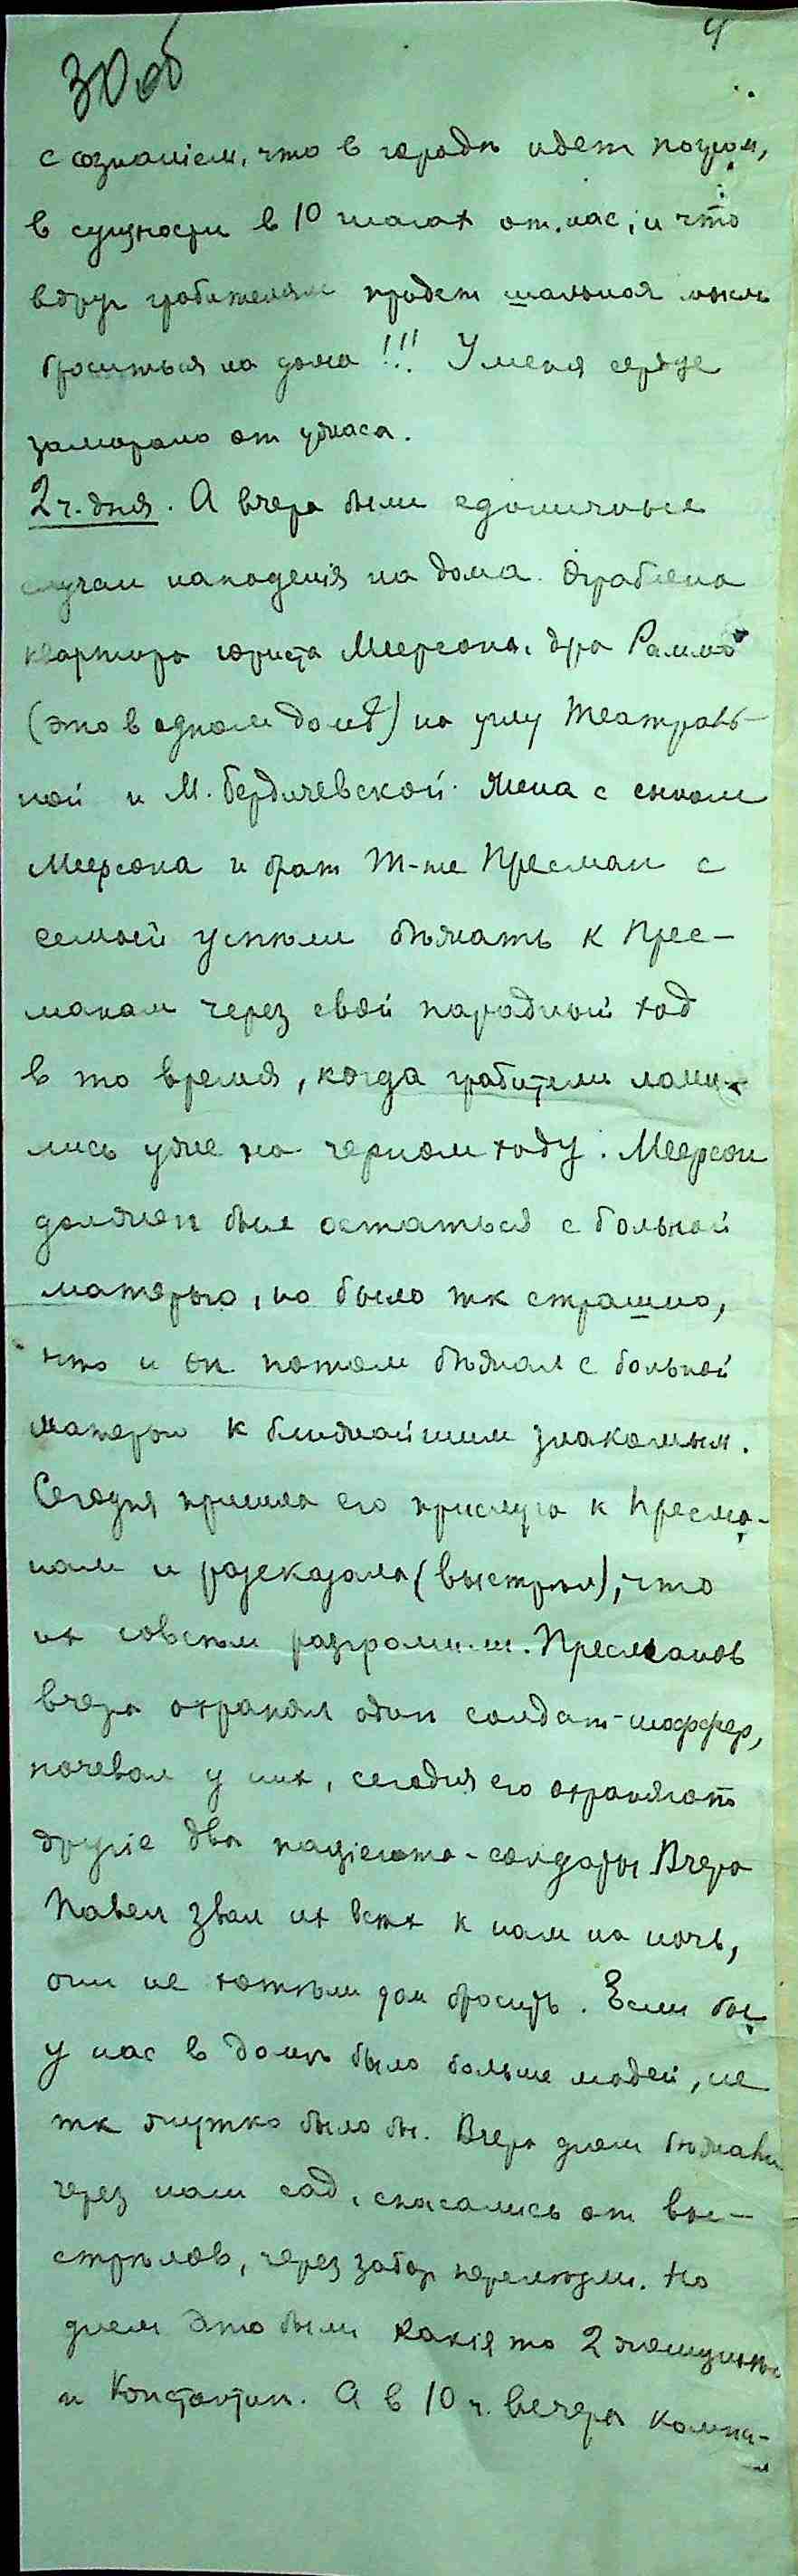 30 об
4
с сознаніем, что в городѣ идет погром,
в сущности в 10 шагах от нас, и что
вдруг грабителям придет шальная мысль
броситься на дома!!! У меня сердце
замирало от ужаса.
2 ч. дня. А вчера были единичные
случаи нападенія на дома. Ограблена
квартира юриста Меерсона, д-ра
(это в одном домѣ) на углу Театраль-
ной и М. Бердичевской. Жена с сыном
Меерсона и брат M-me Пресман с
семьей успѣли бѣжать к Прес-
манам через свой парадный ход
в то время, когда грабители ломи-
лись уже на черном ходу. Меерсон
должен был остаться с больной
матерью, но было тк страшно,
что и он потом бѣжал с больной
матерью к ближайшим знакомым.
Сегодня пришла его прислуга к Пресма-
нам и разсказала (выстрѣл), что
их совсѣм разгромили. Пресманов
вчера охранял один солдат-шоффер,
ночевал у них, сегодня его охраняют
другіе два паціента-солдаты. Вчера
Павел звал их всѣх к нам на ночь,
они не хотѣли дом бросить. Если бы
у нас в домѣ было больше людей, не
тк жутко было бы. Вчера днем бѣжали
через наш сад, спасались от вы-
стрѣлов, через забор перелѣзли. Но
днем это были какія то 2 женщины
и Константин. А в 10 ч. вечера